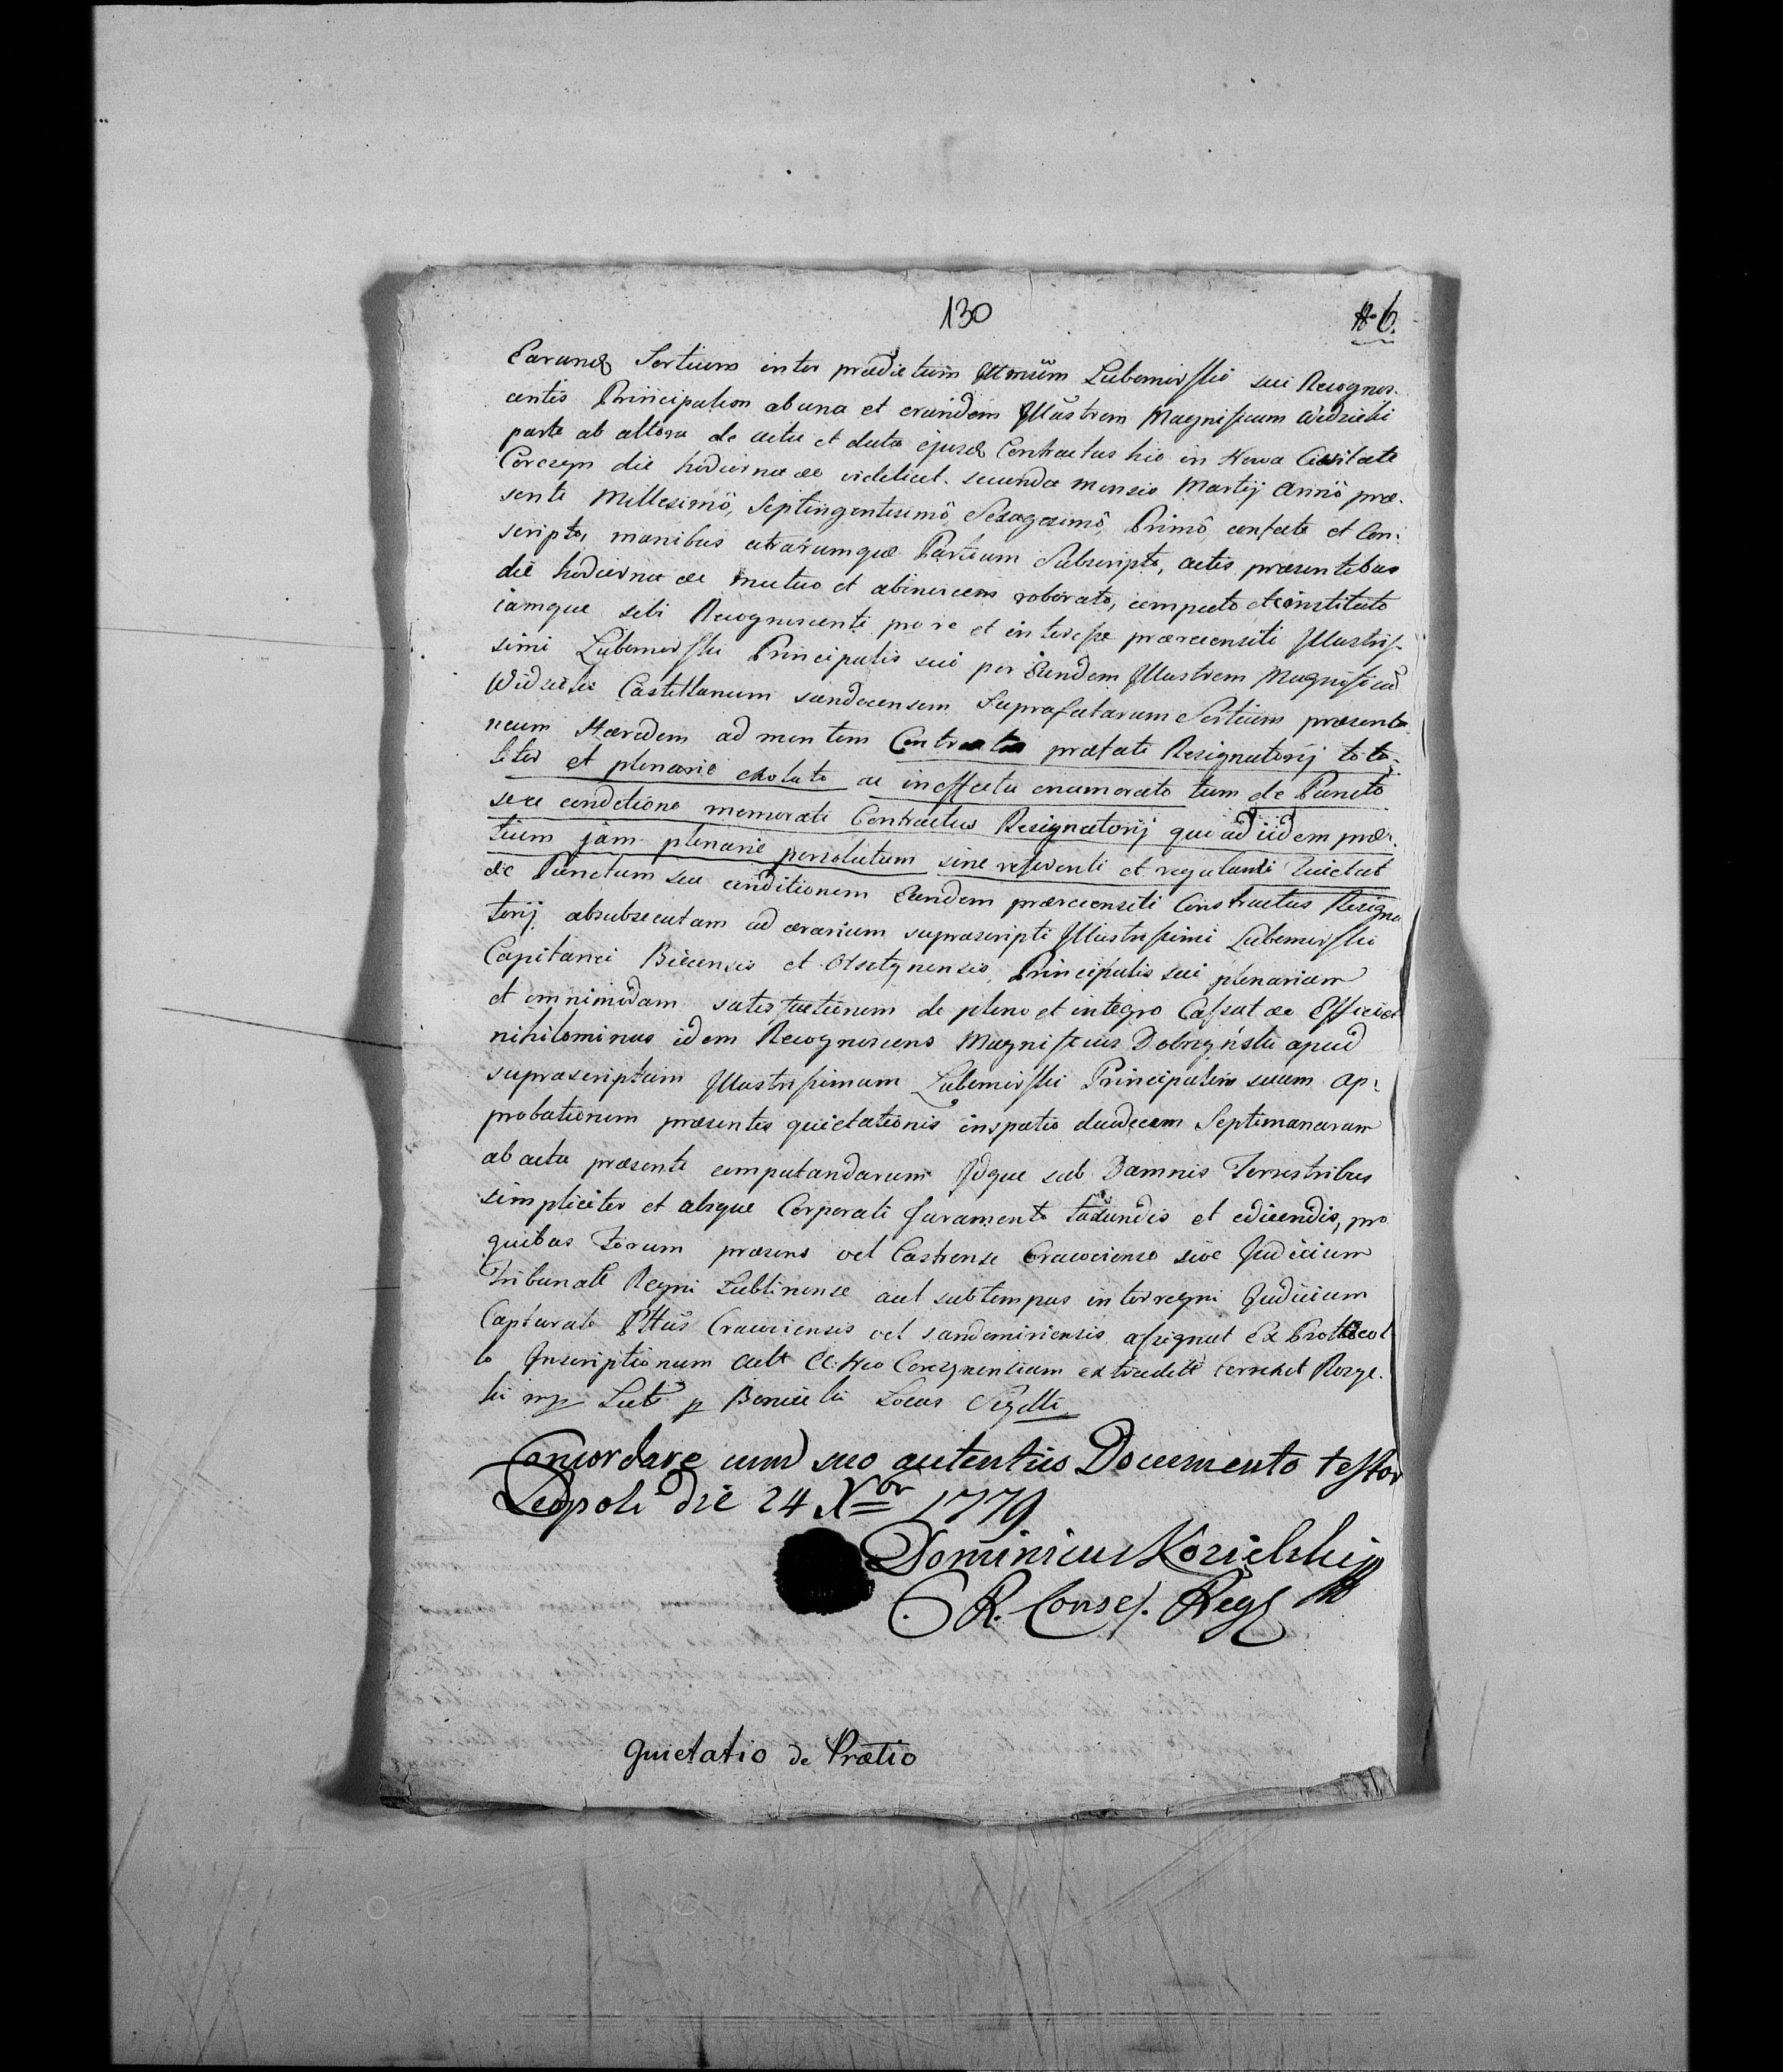 130
No 6.
Earundq Sortium inter prædictum Illmum Lubomirski sui Recognos-
centis Principalem ab una et eundem Illustrem Magnificum Widzicki
parte ab altera de actu et data ejusdq Contractus hic in Nowa Civitate
Corczyn die hodierna ac videlicet secunda mensis Martij Annô præ-
senti Millesimô, Septingentesimô Sexagesimô Primô confecto et con-
scripto, manibus utrarumque Partium Subscripto, actis præsentibus
die hodierna ac mutuo et abinvicem roborato, compacto et instituto
iamque sibi Recognoscenti pro re et interesse præcensiti Illustris-
simi Lubomirski Principalis sui per Eundem Illustrem Magnificum
Widzicki Castellanum sandecensem Suprafatarum Sortium præsenta-
neum Hæredem ad mentem Contractus præfati Resignatorij tota-
liter et plenarie exoluto ac in effectu enumerato tum de Puncto
seu conditione memorati Contractus Resignatorij quoad iidem præ-
tium jam plenarie persolutum sine referenti et regulanti Quietat
ac Punctum seu conditionem Eandem præcensiti Contractus Resigna
torij absubsecutam ad ærarium suprascripti Illustrissimi Lubomirski
Capitanei Biecensis et Olsztynensis, Principalis sui plenariam
et omnimodam satisfactionem de pleno et integro Cassat ac Efficiet
nihilominus idem Recognoscens Magnificus Dobrzyński apud
suprascriptum Illustrissimum Lubomirski Principalem suum ap-
probationem præsentis quietationis in spatio duodecem Septimanarum
ab actu præsenti computandarum Idque sub Damnis Terrestribus
simpliciter et absque Corporali Juramento taxandis et edicendis, pro
quibus Forum præsens vel Castrense Cracoviense sive Judicium
Tribunale Regni Lublinense aut sub tempus interregni Judicium
Capturale Pttus Cracoviensis vel Sandomiriensis assignat Ex Prothocol
lo Inscriptionum Castr Corczynensium extraditt correxit Rozyc-
ki mp Lect p Boniecki Locus Sigilli
Concordare cum suo autentico Documento testor
Leopoli die 24 Xbr 1779
Dominicus Kozielski mp
C. R. Conses. Regs
Quietatio de Prætio